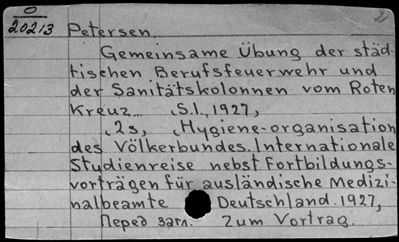 0
20213 Petersen.
Gemeinsame Übung der städ-
tischen Berufsfeuerwehr und
der Sanitätskolonnen vom Roten
Kreuz... S.l., 1927,
2s, Hygiene-organisation
des Völkerbundes. Internationale
Studienreise nebst Fortbildungs-
vorträgen für ausländische Medizi-
nalbeamte Deutschland. 1927,
Перед загл. Zum Vortrag.